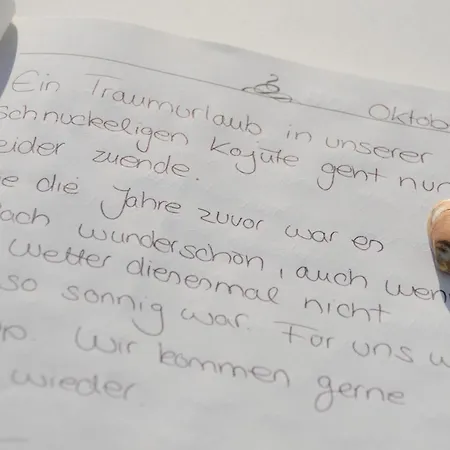 Oktob
Ein Traumurlaub in unserer
schnuckeligen Kojüte geht nun
eider zuende.
e die Jahre zuvor war es
fach wunderschön, auch wen
Wetter diesesmal nicht
so sonnig war. Für uns w
Wir kommen gerne
wieder.